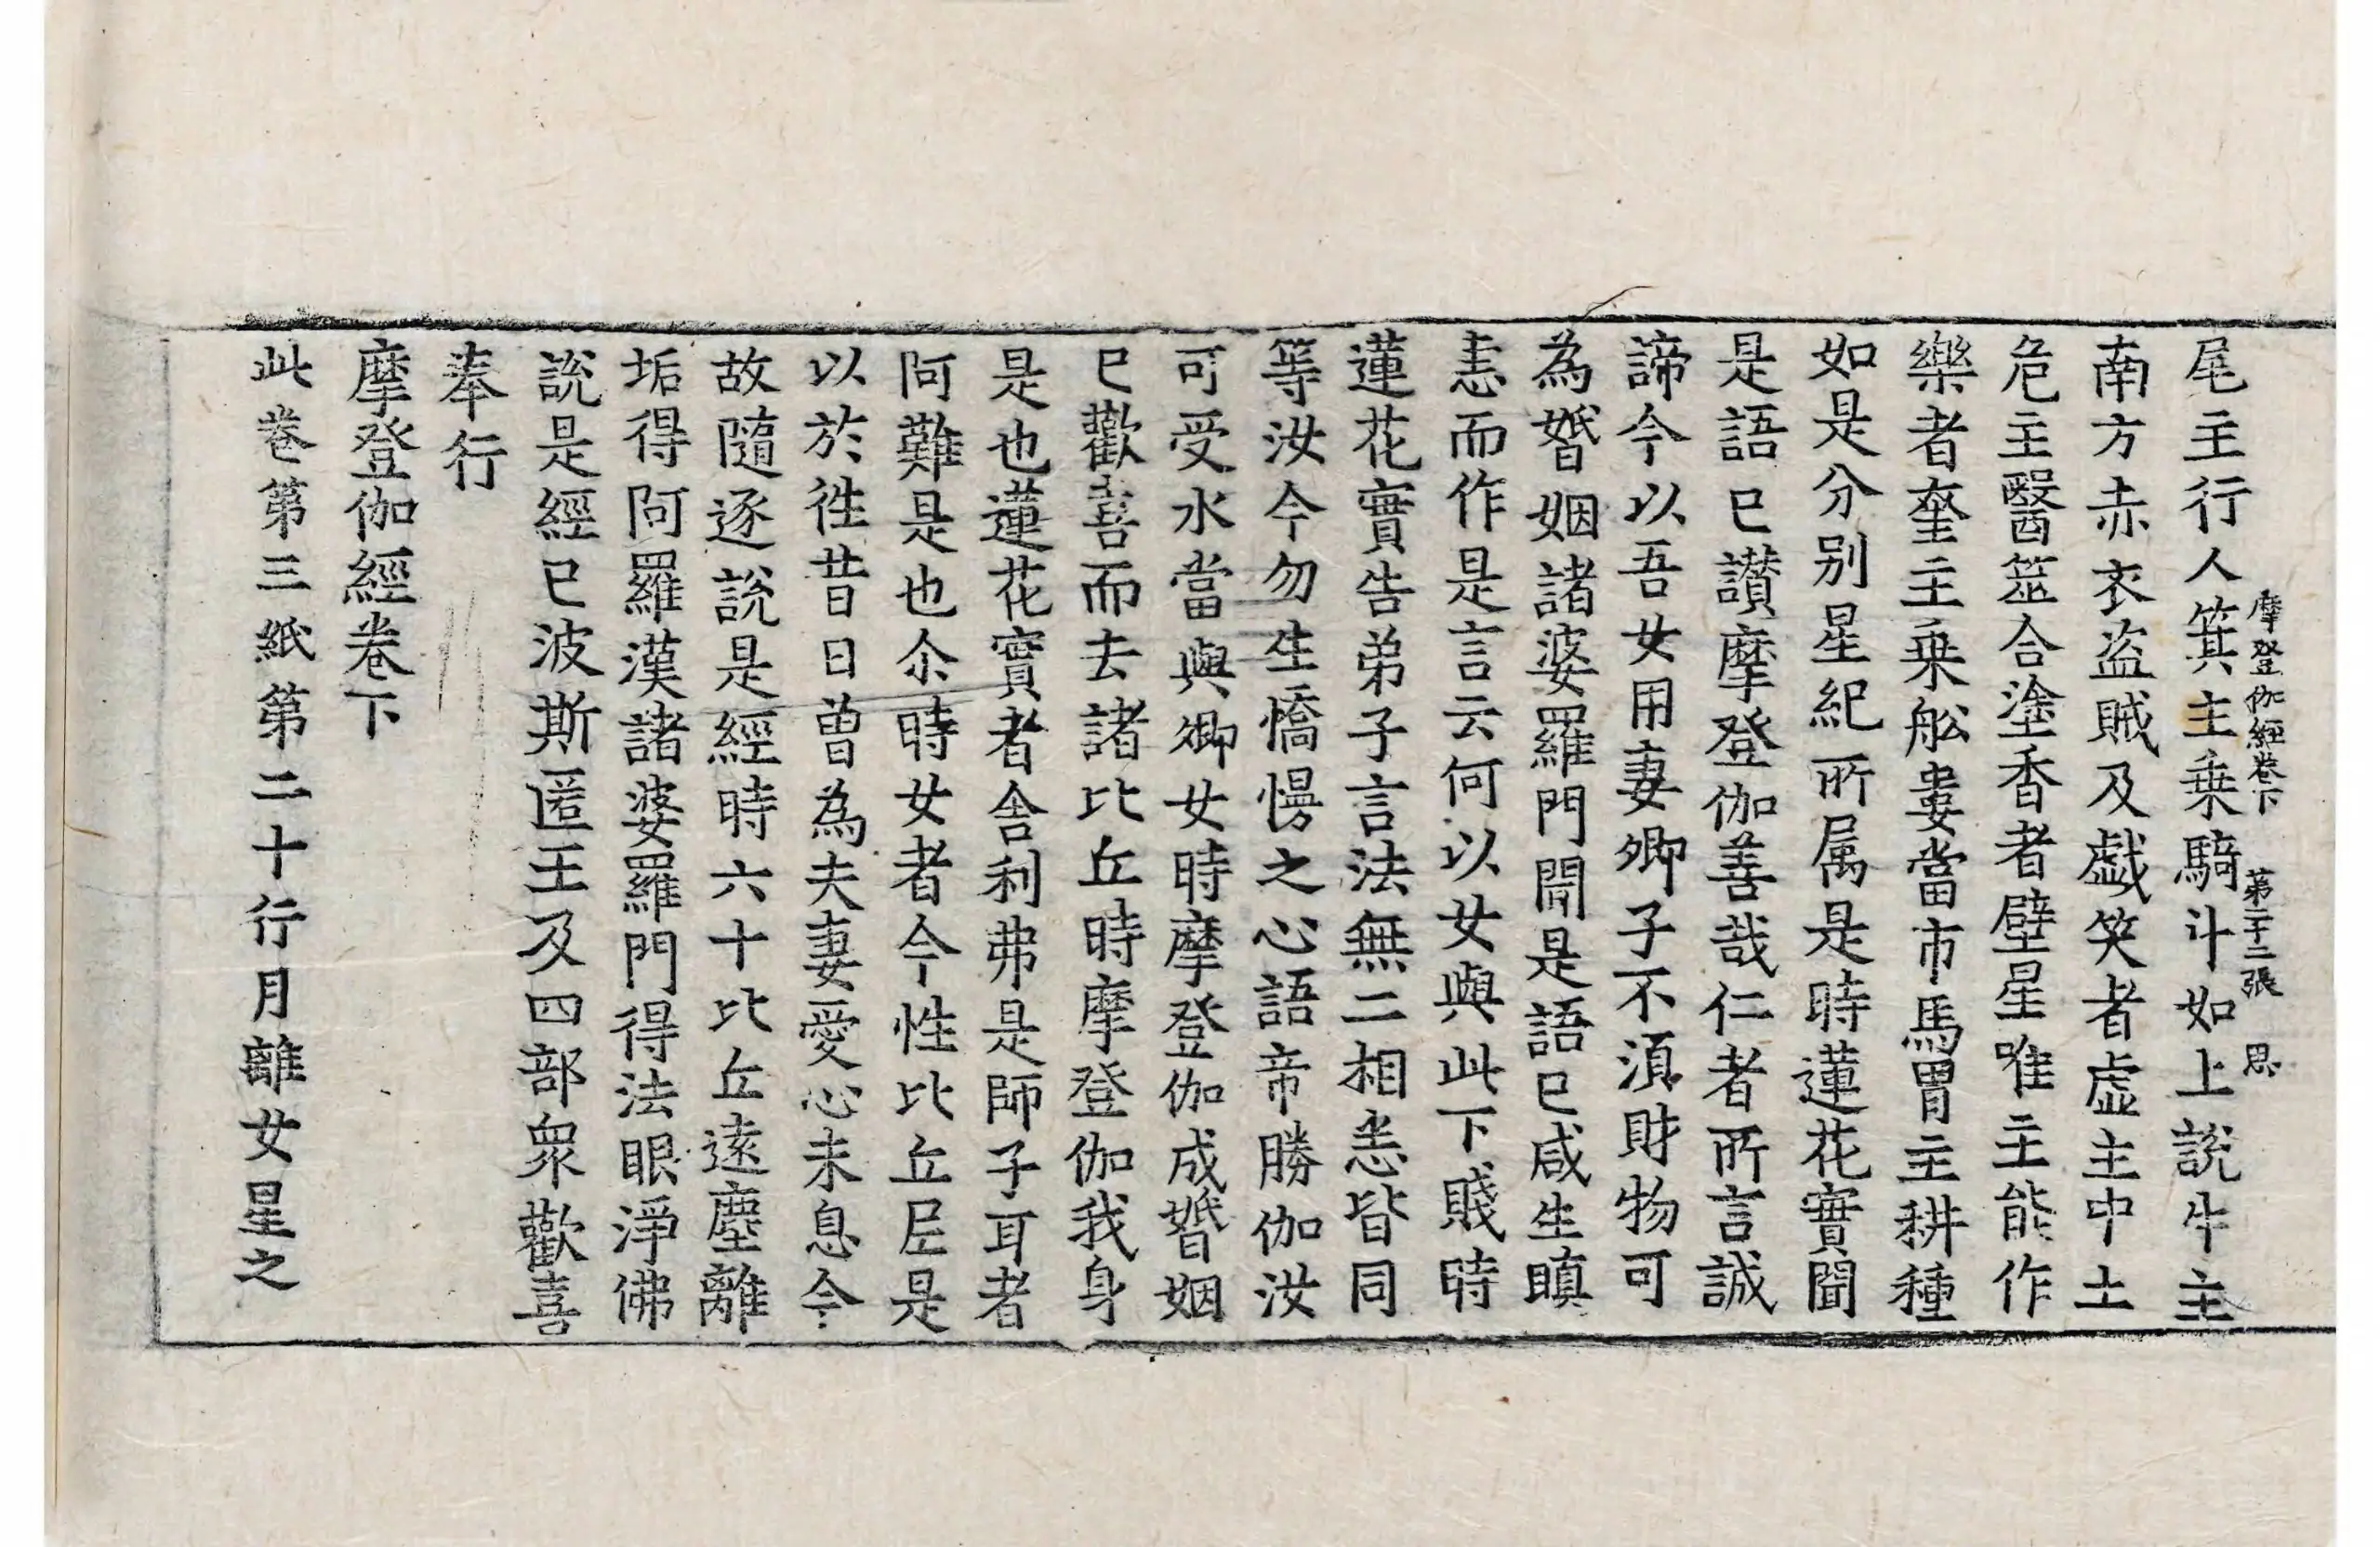 摩登伽經卷下　第二十二張　思
尾主行人箕主乗騎斗如上說牛主
南方赤衣盜賊及戯笑者虛主中土
危主醫筮合塗香者壁星唯主能作
樂者奎主乗舩婁當市馬胃主耕種
如是分別星紀所属是時蓮花實聞
是語已讃摩登伽善哉仁者所言誠
諦今以吾女用妻卿子不湏財物可
為婚姻諸婆羅門聞是語已咸生瞋
恚而作是言云何以女與此下賤時
蓮花實告弟子言法無二相悉皆同
等汝今勿生憍慢之心語帝勝伽汝
可受水當與卿女時摩登伽成婚姻
已歡喜而去諸比丘時摩登伽我身
是也蓮花實者舍利弗是師子耳者
阿難是也尒時女者今性比丘尼是
以於徃昔日曽為夫妻愛心未息今
故隨逐說是經時六十比丘遠塵離
垢得阿羅漢諸婆羅門得法眼淨佛
說是經已波斯匿王及四部衆歡喜
奉行
摩登伽經卷下
此卷第三紙第二十行月離女星之